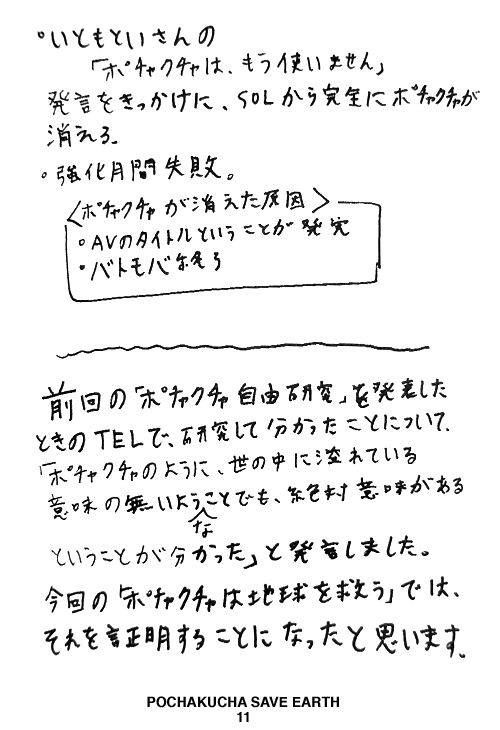 ・いともといさんの
「ポチャクチャは、もう使いません」
発言をきっかけに、SOLから完全にポチャクチャが
消える。
・強化月間失敗。
〈ポチャクチャが消えた原因〉
・AVのタイトルということが発覚
・バトモバ終る
前回の「ポチャクチャ自由研究」を発表した
ときのTELで、研究して分かったことについて、
「ポチャクチャのように、世の中に溢れている
意味の無いようことでも、絶対意味がある
な
ということが分かった」と発言しました。
今回の「ポチャクチャは地球を救う」では、
それを証明することになったと思います。
POCHAKUCHA SAVE EARTH
11